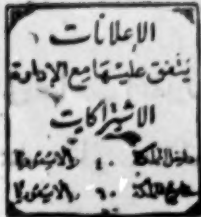 الإعلانات
يتفق عليها مع الإدارة
الاشتراكات
داخل المملكة ٤٠
خارج المملكة ٦٠